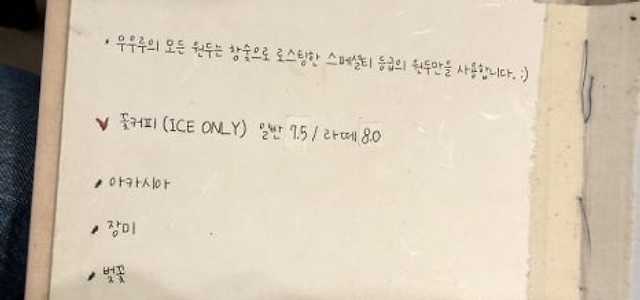 • 우우루의 모든 원두는 참숯으로 로스팅한 스페셜티 등급의 원두만을 사용합니다. :)
꽃커피 (ICE ONLY) 일반 7.5 / 라떼 8.0
아카시아
장미
벚꽃